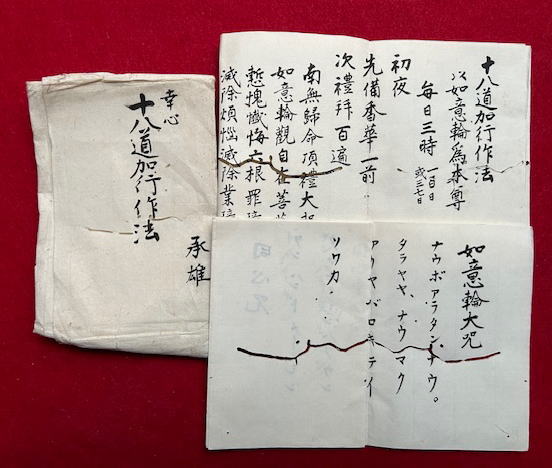 幸心
十八道加行作法
承雄
十八道加行作法
以如意輪為本尊
毎日三時 一百日
或三七日
初夜
先備香華一前
次禮拜百遍
南無歸命頂禮大
如意輪觀自在菩
慙愧懺悔六根罪
滅除煩悩滅除業
如意輪大咒
ナウボアラタンナウ。
タラヤヤ、ナウマク
アリヤバロキテイ
ソワカ、